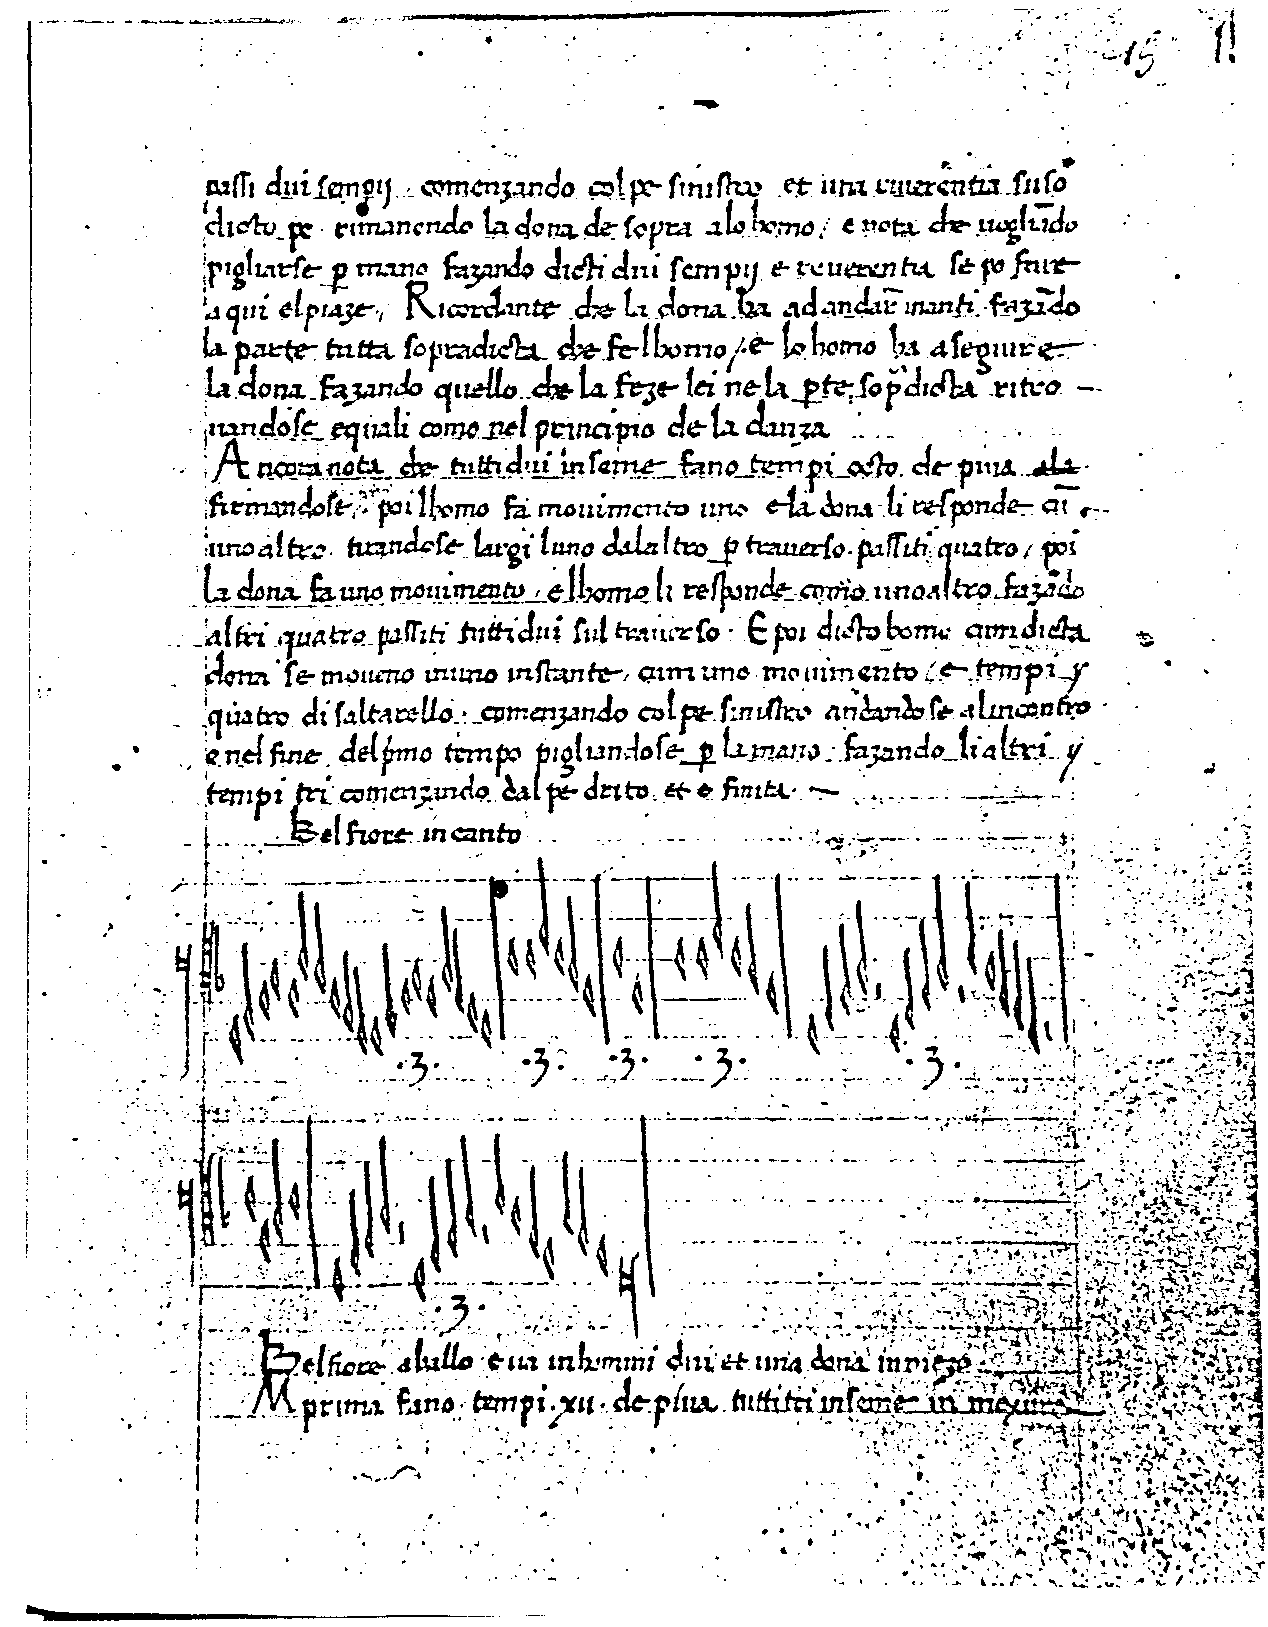 15 11
passi dui sempij. comenzando col pe sinistro et una riuerentia suso
dicto pe rimanendo la dona de sopra a lo homo / e nota che uogliādo
pigliarse p mano fazando dicti dui sempij e reuerentia se po fare
a qui el piaze, Ricordante che la dona ha ad andar inanti fazādo
la parte tutta sopradicta che fe lhomo /. e lo homo ha a seguire
la dona fazando quello che la feze lei ne la pte sopdicta ritro
uandose equali como nel principio de la danza
Ancora nota che tutti dui inseme fano tempi octo de piua
firmandose poi lhomo fa mouimento uno e la dona li responde cū
uno altro tirandose largi luno dalaltro p trauerso. passiti quatro / poi
la dona fa uno mouimento, e lhomo li responde como uno altro fazādo
altri quatro passiti tutti dui sul trauerso. E poi dicto homo cum dicta
dona se moueno in uno instante, cum uno mouimento / e tempi y
quatro di saltarello. comenzando col pe sinistro andando se alincontro
e nel fine del pmo tempo pigliandose p la mano. fazando li altri y
tempi tri comenzando dal pe drito. et e finita.
Belfiore in canto
.3. .3. .3. .3. .3.
.3.
Belfiore a ballo e ua in homini dui et una dona in mezo
In prima fano tempi .xii. de piua tutti tri inseme